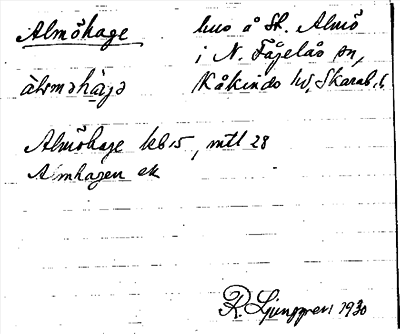 Almöhage hus å St. Almö
i N. Fågelås sn,
àlməhàgə Kåkinds hd, Skarab. l.
Almöhage kb 15, mtl 28
Almhagen ek
R. Ljunggren 1930